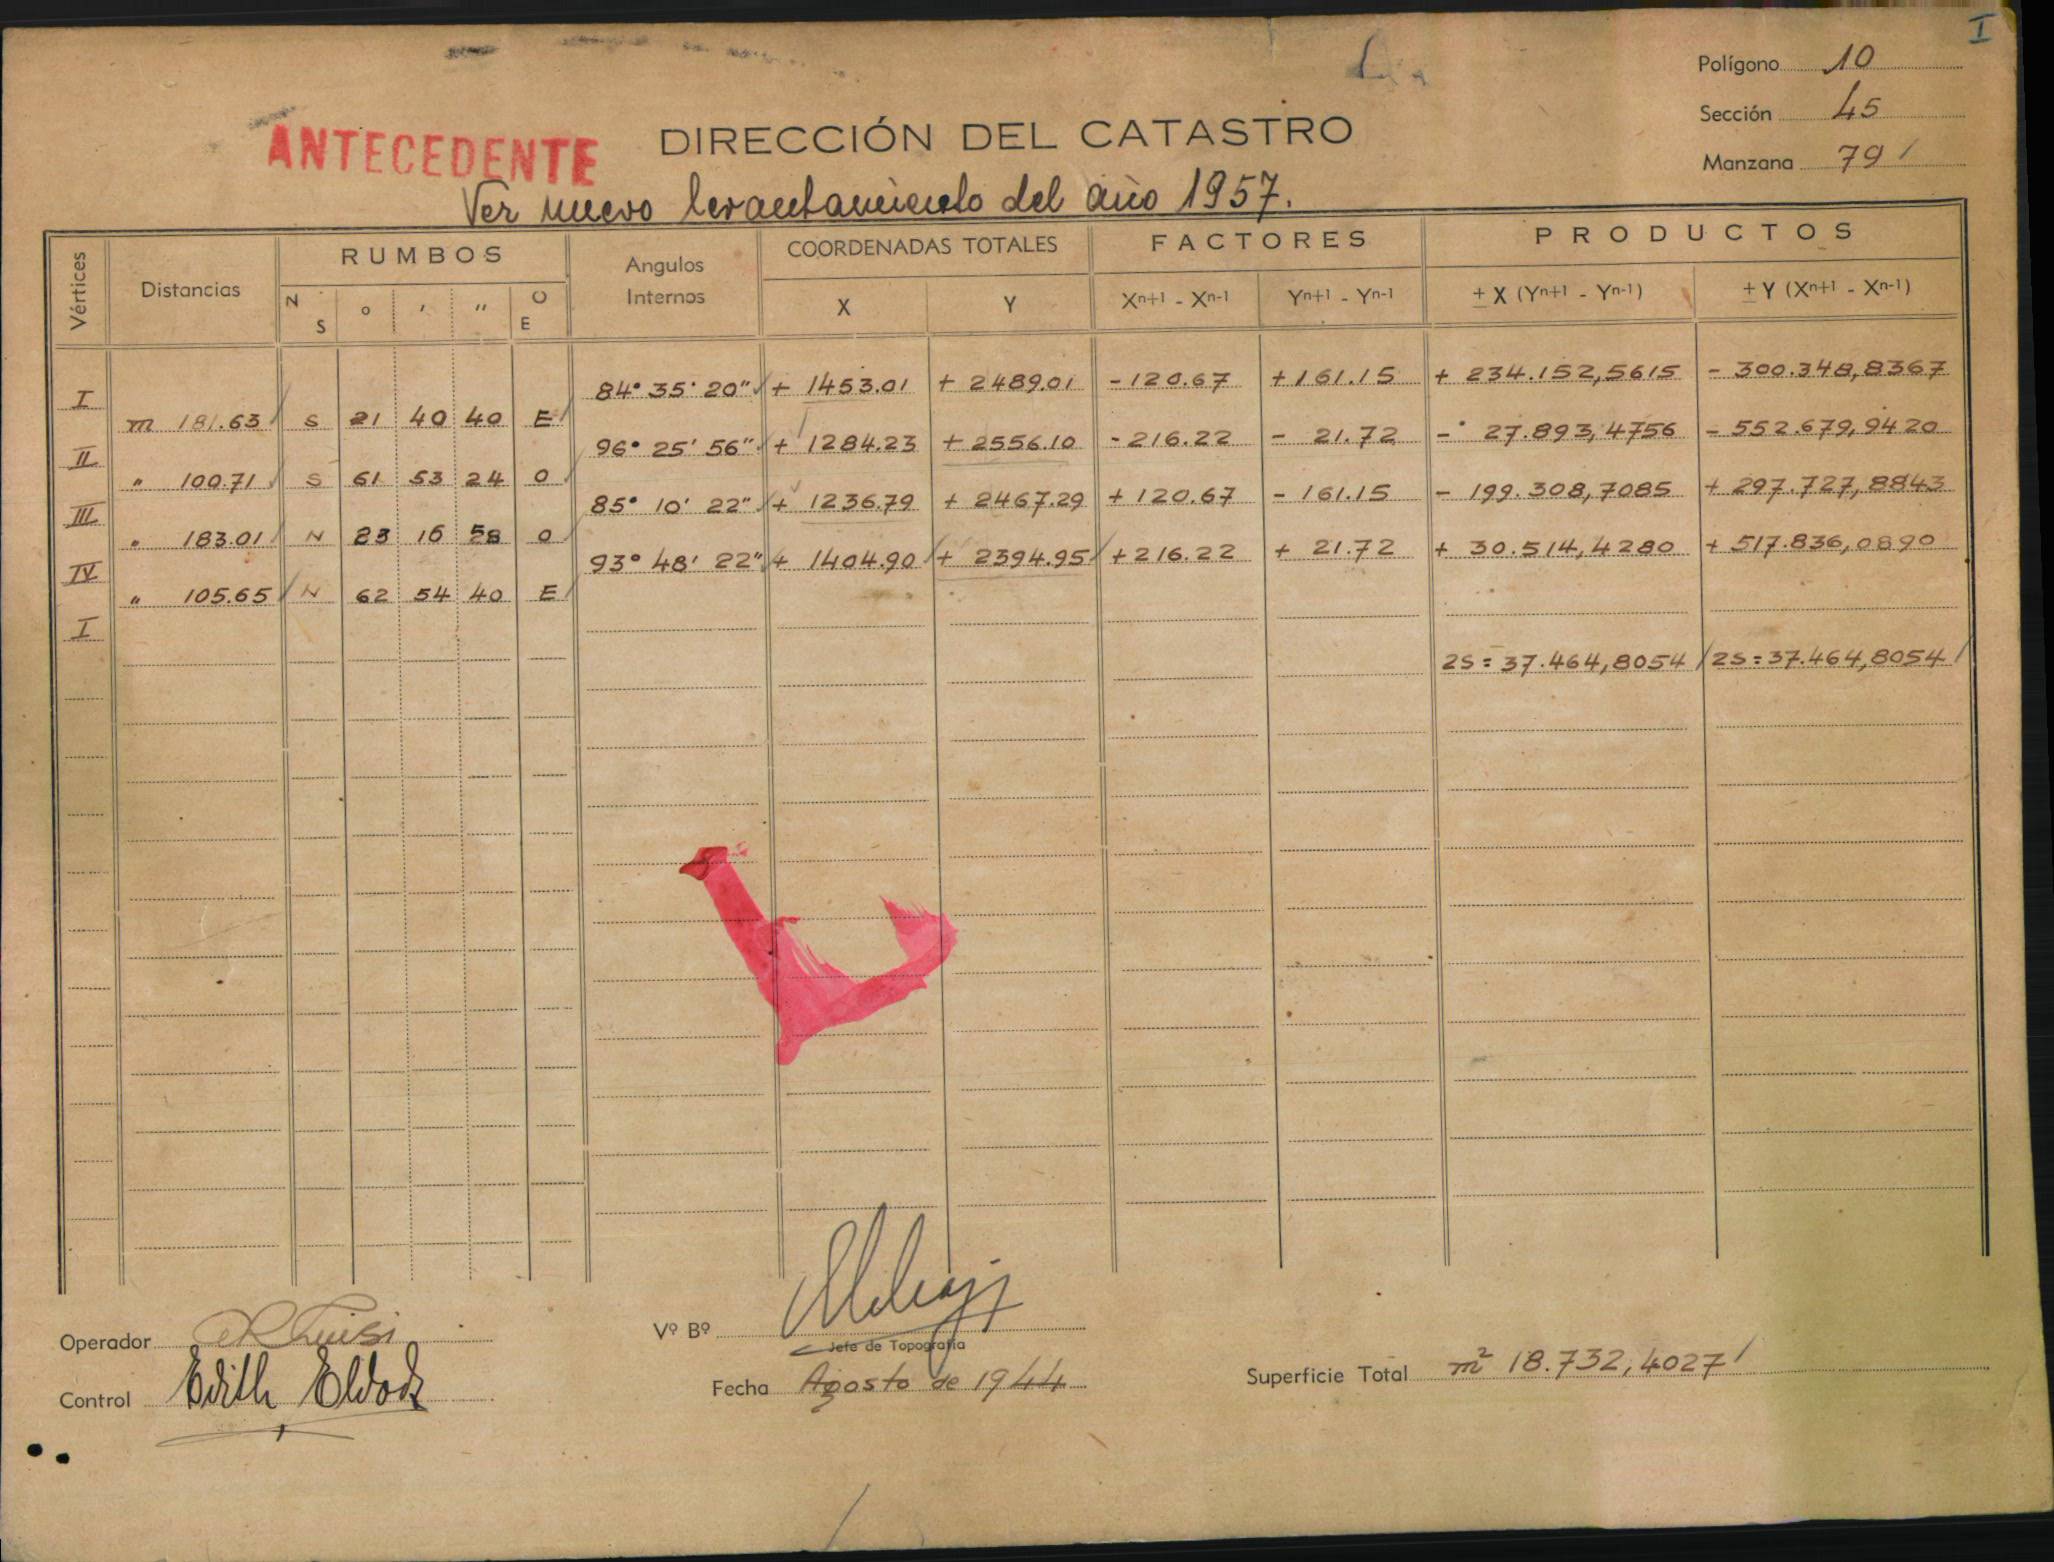 I
Polígono 10
Sección 45
Manzana 79
ANTECEDENTE
DIRECCIÓN DEL CATASTRO
Ver nuevo levantamiento del año 1957.
Vértices Distancias RUMBOS Angulos Internos COORDENADAS TOTALES FACTORES PRODUCTOS
N S ° ' " O E X Y Xn+1 - Xn-1 Yn+1 - Yn-1 ± X (Yn+1 - Yn-1) ± Y (Xn+1 - Xn-1)
I 84° 35' 20" + 1453.01 + 2489.01 - 120.67 + 161.15 + 234.152,5615 - 300.348,8367
m 181.63 S 21 40 40 E
II 96° 25' 56" + 1284.23 + 2556.10 - 216.22 - 21.72 - 27.893,4756 - 552.679,9420
" 100.71 S 61 53 24 O
III 85° 10' 22" + 1236.79 + 2467.29 + 120.67 - 161.15 - 199.308,7085 + 297.727,8843
" 183.01 N 23 16 58 O
IV 93° 48' 22" + 1404.90 + 2394.95 + 216.22 + 21.72 + 30.514,4280 + 517.836,0890
" 105.65 N 62 54 40 E
I
2S = 37.464,8054 2S = 37.464,8054
Operador
Vº Bº
Jefe de Topografía
Control Edith
Fecha Agosto de 1944
Superficie Total m² 18.732,4027